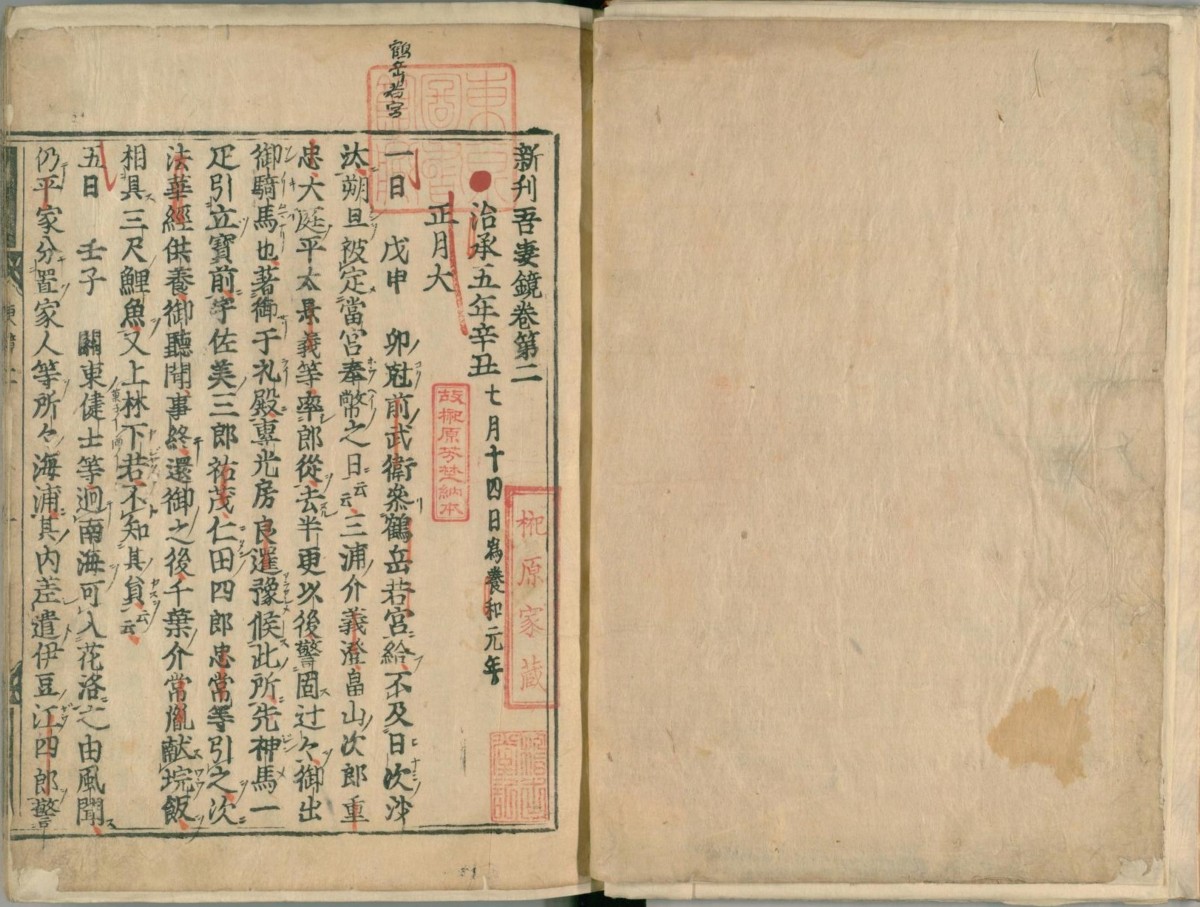 新刊吾妻鏡卷第二
治承五年辛丑 七月十四日為養和元年
正月大
一日 戊申 卯尅前武衛參鶴岳若宮給不及日次沙
汰朔旦被定當宮奉幣之日云云三浦介義澄畠山次郎重
忠大庭平太景義等率郎從去半更以後警固辻々御出
御騎馬也著御于礼殿專光房良暹豫候此所先神馬一
疋引立寶前宇佐美三郎祐茂仁田四郎忠常等引之次
法華經供養御聽聞事終還御之後千葉介常胤献埦飯
相具三尺鯉魚又上林下若不知其員云云
五日 壬子 關東健士等迴南海可入花洛之由風聞
仍平家分置家人等所々海浦其內差遣伊豆江四郎警
鶴岳若宮
故榊原芳埜納本
榊原家蔵